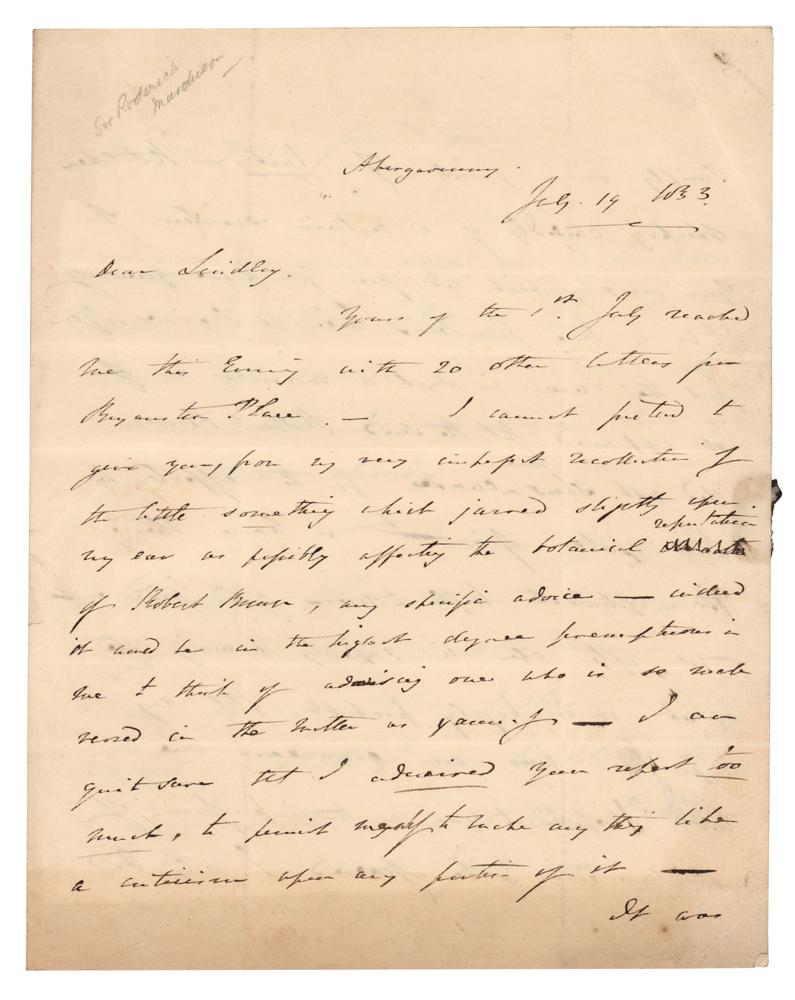 Sir Roderick
Murchison
Abergavenny.
July. 19 1833.
Dear Lindley.
Yours of the 1st. July reached
me this Evening with 20 other letters per
Bryanston Place. — I cannot pretend to
give you, from my very imperfect recollection of
the little something which jarred slightly upon
my ear as possibly affecting the botanical reputation
of Robert Brown, any specific advice — indeed
it would be in the highest degree presumptuous in
me to think of advising one who is so well
versed in the matter as yourself — I am
quite sure tht I admired your report too
much, to permit myself to make any thing like
a criticism upon any portion of it —
It was